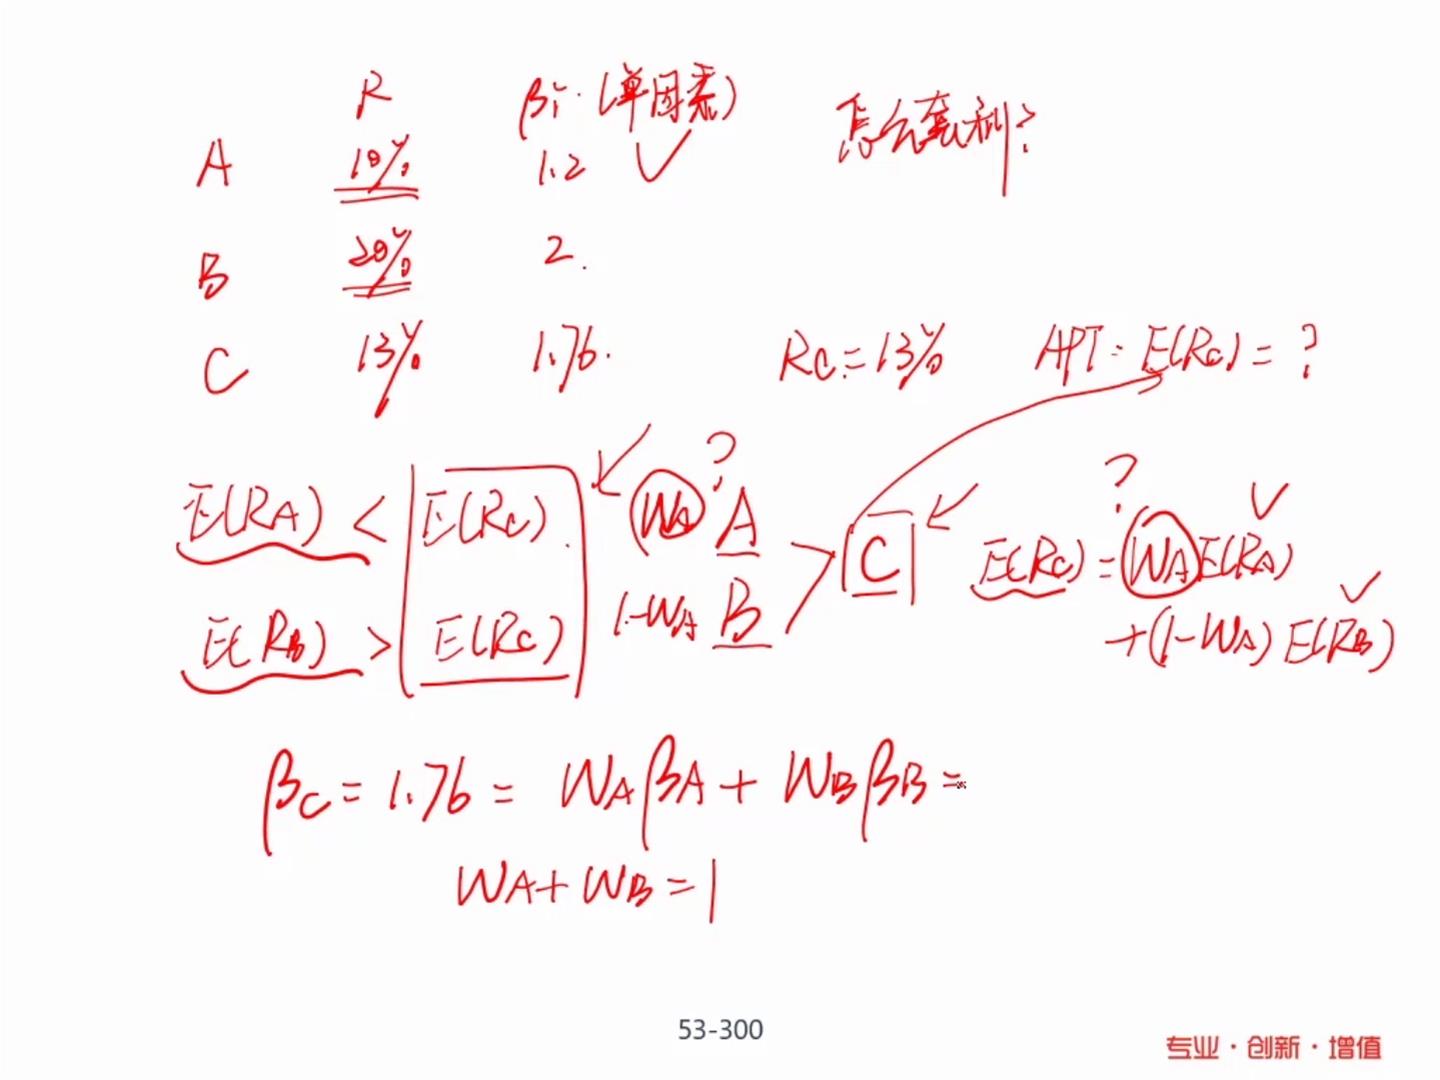 R βi (单因素) 怎么套利?
A 10% 1.2
B 20% 2.
C 13% 1.76. RC = 13% APT: E(RC) = ?
E(RA) < E(RC). WA? A
E(RB) > E(RC) 1-WA B
C
E(RC) = WA?E(RA)
+(1-WA) E(RB)
βC = 1.76 = WAβA + WBβB =
WA + WB = 1
53-300
专业·创新·增值